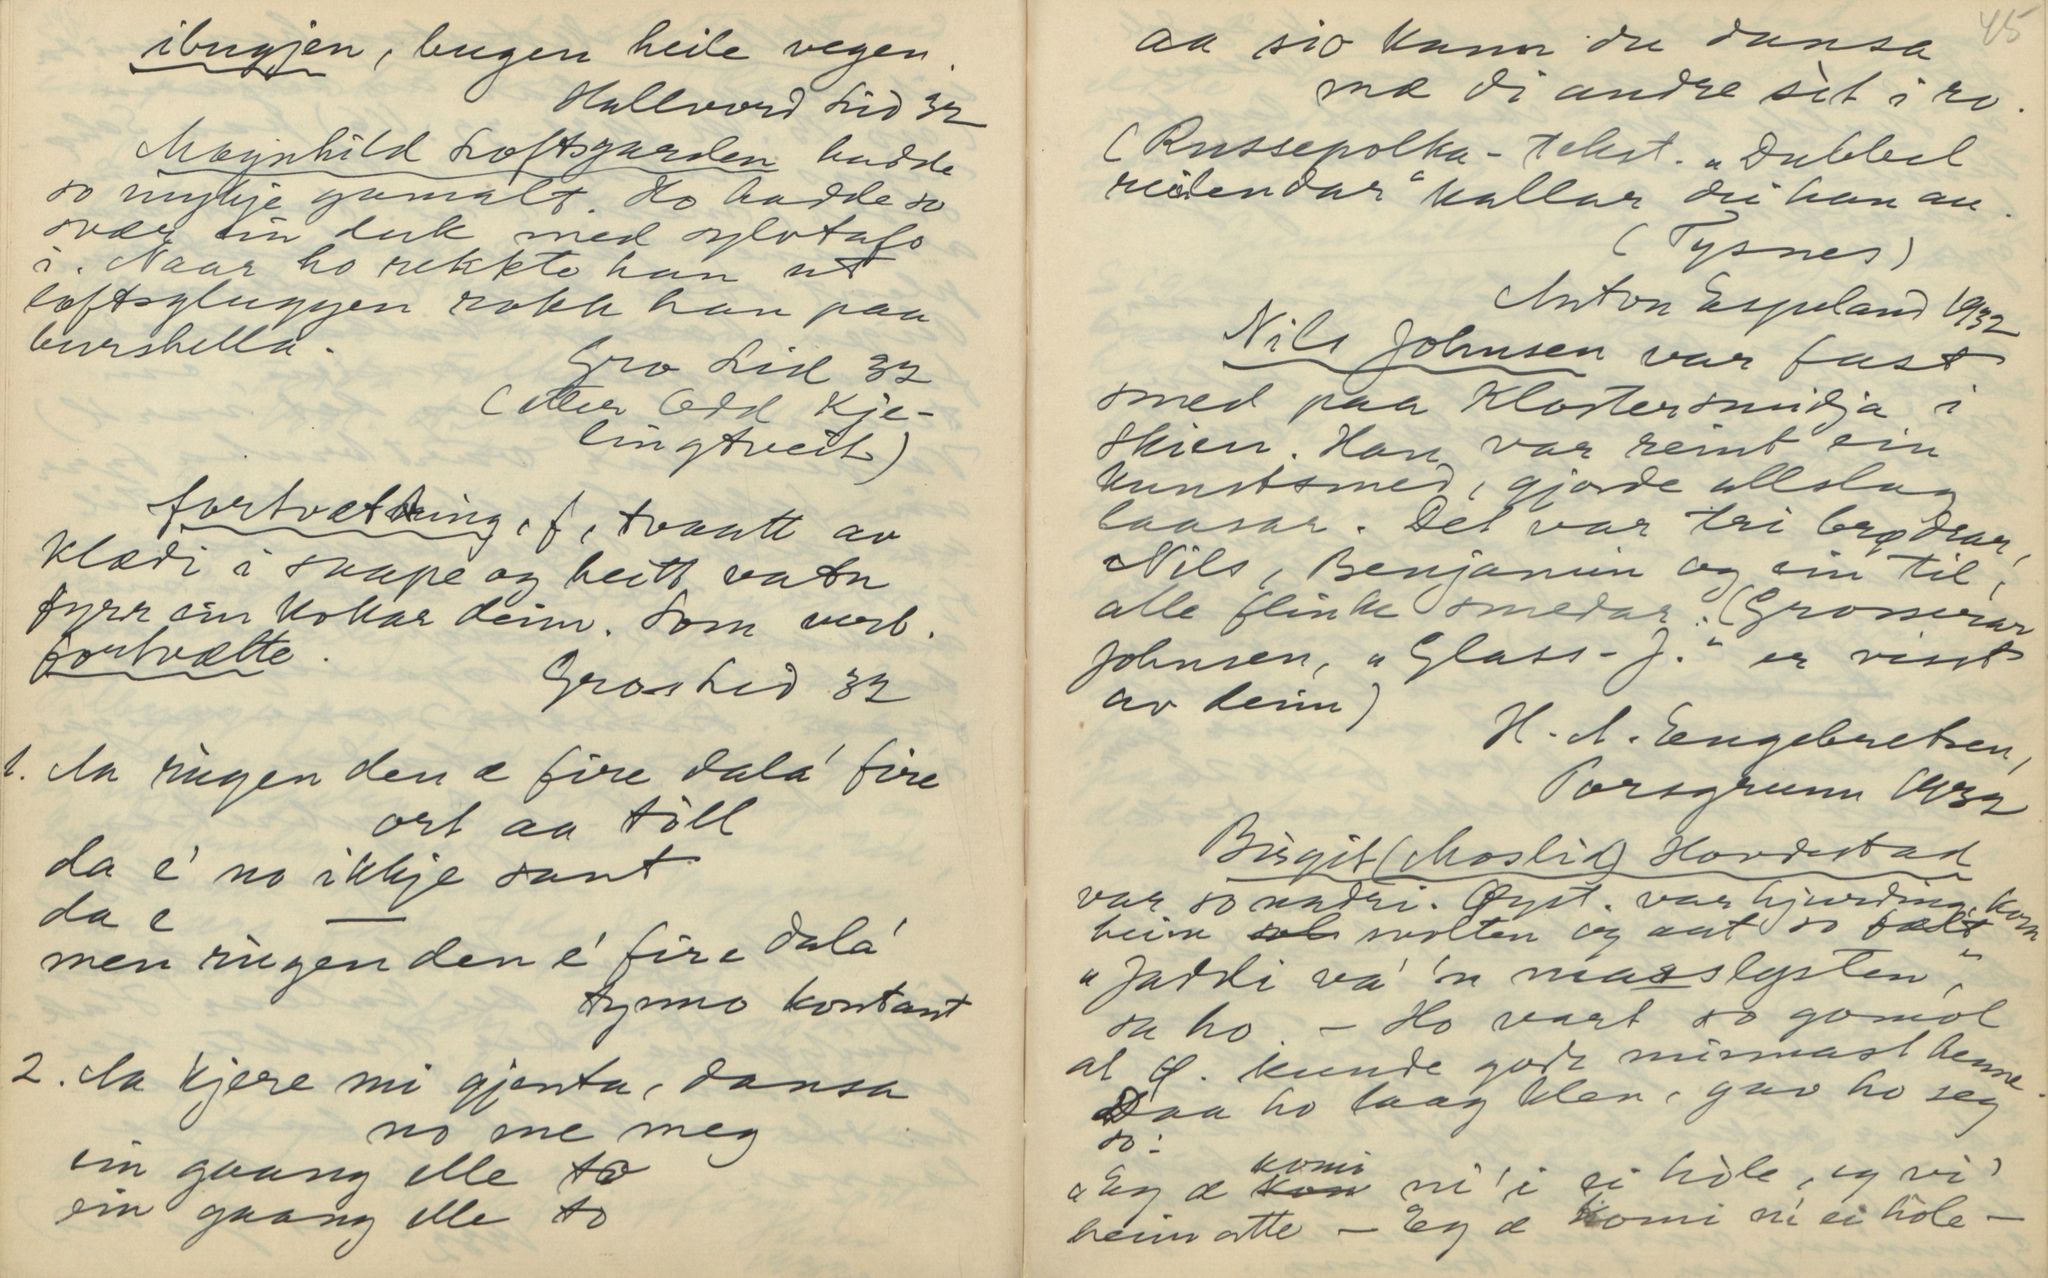 ibugjen, bugen heile vegen.
Hallvord Lid 32
Magnhild Loftsgarden hadde
so mykje gamalt. Ho hadde so
svær ein duk med sylvtafs
i. Naar ho rekkte han ut
loftsgluggen rakk han paa
burshella.
Gro Lid 32
(etter Odd Kje-
lingtveit)
fortvætting, f, tvaatt av
klædi i saape og heitt vatn
fyrr ein kokar deim. Som verb.
fortvætte.
Gro Lid 32
1. Aa ringen den æ fire dalá fire
ort aa tòll
da é no ikkje sant
da e —
men ringen den é fire dalá
tynno kontant
2. Aa kjere mi gjenta, dansa
no me meg
ein gaang elle to
ein gaang elle to
45
aa sio kann du dansa
mæ di andre sèt i ro.
(Russepolka-tekst. "Dubbel
reilendar" kallar dei han au.
(Tysnes)
Anton Espeland 1932
Nils Johnsen var fast
smed paa Klostersmidja i
Skien. Han var reint ein
kunstsmed, gjorde allslag
laasar. Det var tri brødrar,
Nils, Benjamin og ein til,
alle flinke smedar. (Grosserar
Johnsen, "Glass-J." er visst
av deim)
H. A. Engebretsen,
Porsgrunn 1932
Birgit (Moslid) Hovdestad
var so nadri. Øyst. var hjuring, kom
heim svolten og aat so fælt
"Jaddi vá 'n masslysten",
sa ho — Ho vart so gomol
at Ø. kunde godt minnast henne.
Daa ho laag klen, gav ho seg
so:
komi
"Eg æ kom ni' i ei hòle, og vi'
heimatte — Eg æ komi ni' ei hòle —